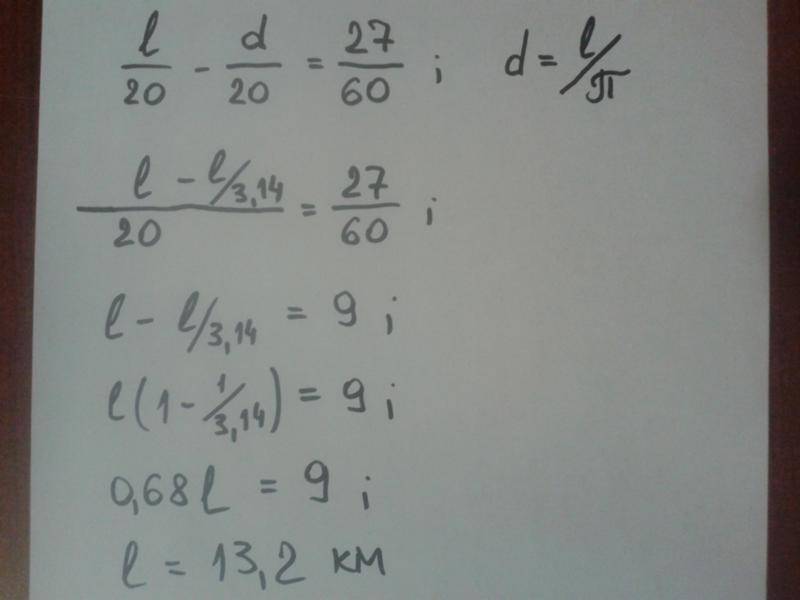 l/20 - d/20 = 27/60 ; d = l/π
(l - l/3,14)/20 = 27/60 ;
l - l/3,14 = 9 ;
l(1 - 1/3,14) = 9 ;
0,68l = 9 ;
l = 13,2 км